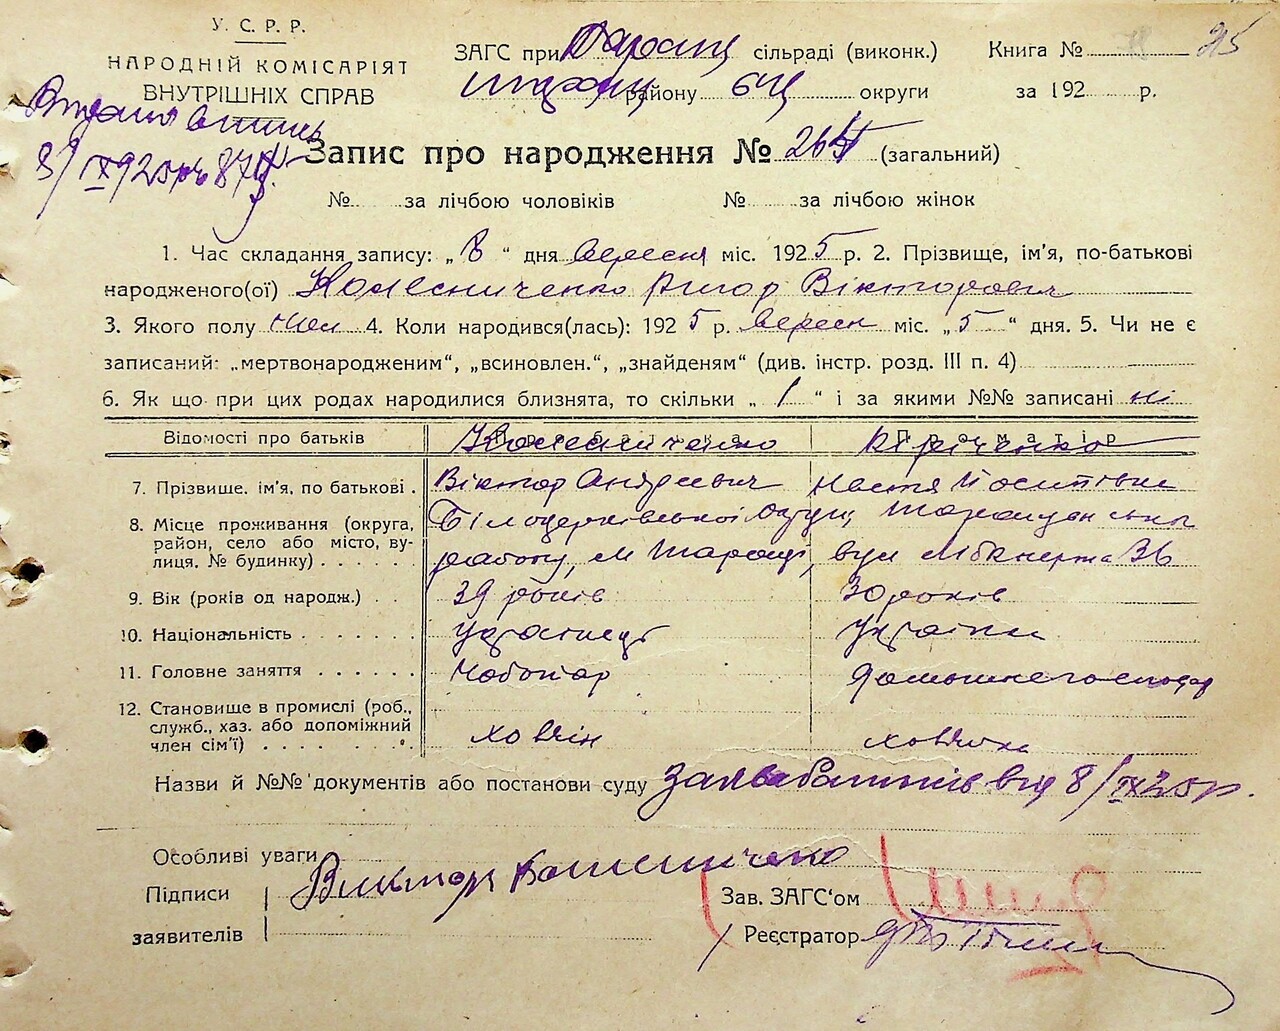 У. С. Р. Р.
НАРОДНІЙ КОМІСАРІЯТ
ВНУТРІШНІХ СПРАВ
ЗАГС при Таращ сільраді (виконк.)
району БЦ округи
Книга № 25
за 192 р.
8/IX 925 р. № 87
Запис про народження № 265 (загальний)
№ за лічбою чоловіків № за лічбою жінок
1. Час складання запису: „ 8 “ дня вересня міс. 1925 р. 2. Прізвище, ім'я, по-батькові
народженого(ої) Колесниченко Вигор Вікторович
3. Якого полу чол 4. Коли народився(лась): 1925 р. вересн міс. „ 5 “ дня. 5. Чи не є
записаний: „мертвонародженим“, „всиновлен.“, „знайденям“ (див. інстр. розд. III п. 4)
6. Як що при цих родах народилися близнята, то скільки „ 1 “ і за якими №№ записані ні
Відомості про батьків Про батька Про матір
Колесниченко Кіріченко
7. Прізвище. ім'я, по батькові . Віктор Андреевич Настя Йосипівна
8. Місце проживання (округа, Білоцерківської округи, Таращанського
район, село або місто, ву-
лиця. № будинку) . . . . . . району, м Тараща, вул Лібкнехта 36
9. Вік (років од народж.) . . 39 років 30 років
10. Національність . . . . . . . українець українка
11. Головне заняття . . . . . . чоботар домашнегосподар
12. Становище в промислі (роб.,
служб., хаз. або допоміжний
член сім'ї) . . . . . . . . . хазяїн хазяйка
Назви й №№ документів або постанови суду Заява батьків від 8/IX 25 р.
Особливі уваги
Підписи Виктор Колесниченко
заявителів
Зав. ЗАГС'ом
Реєстратор